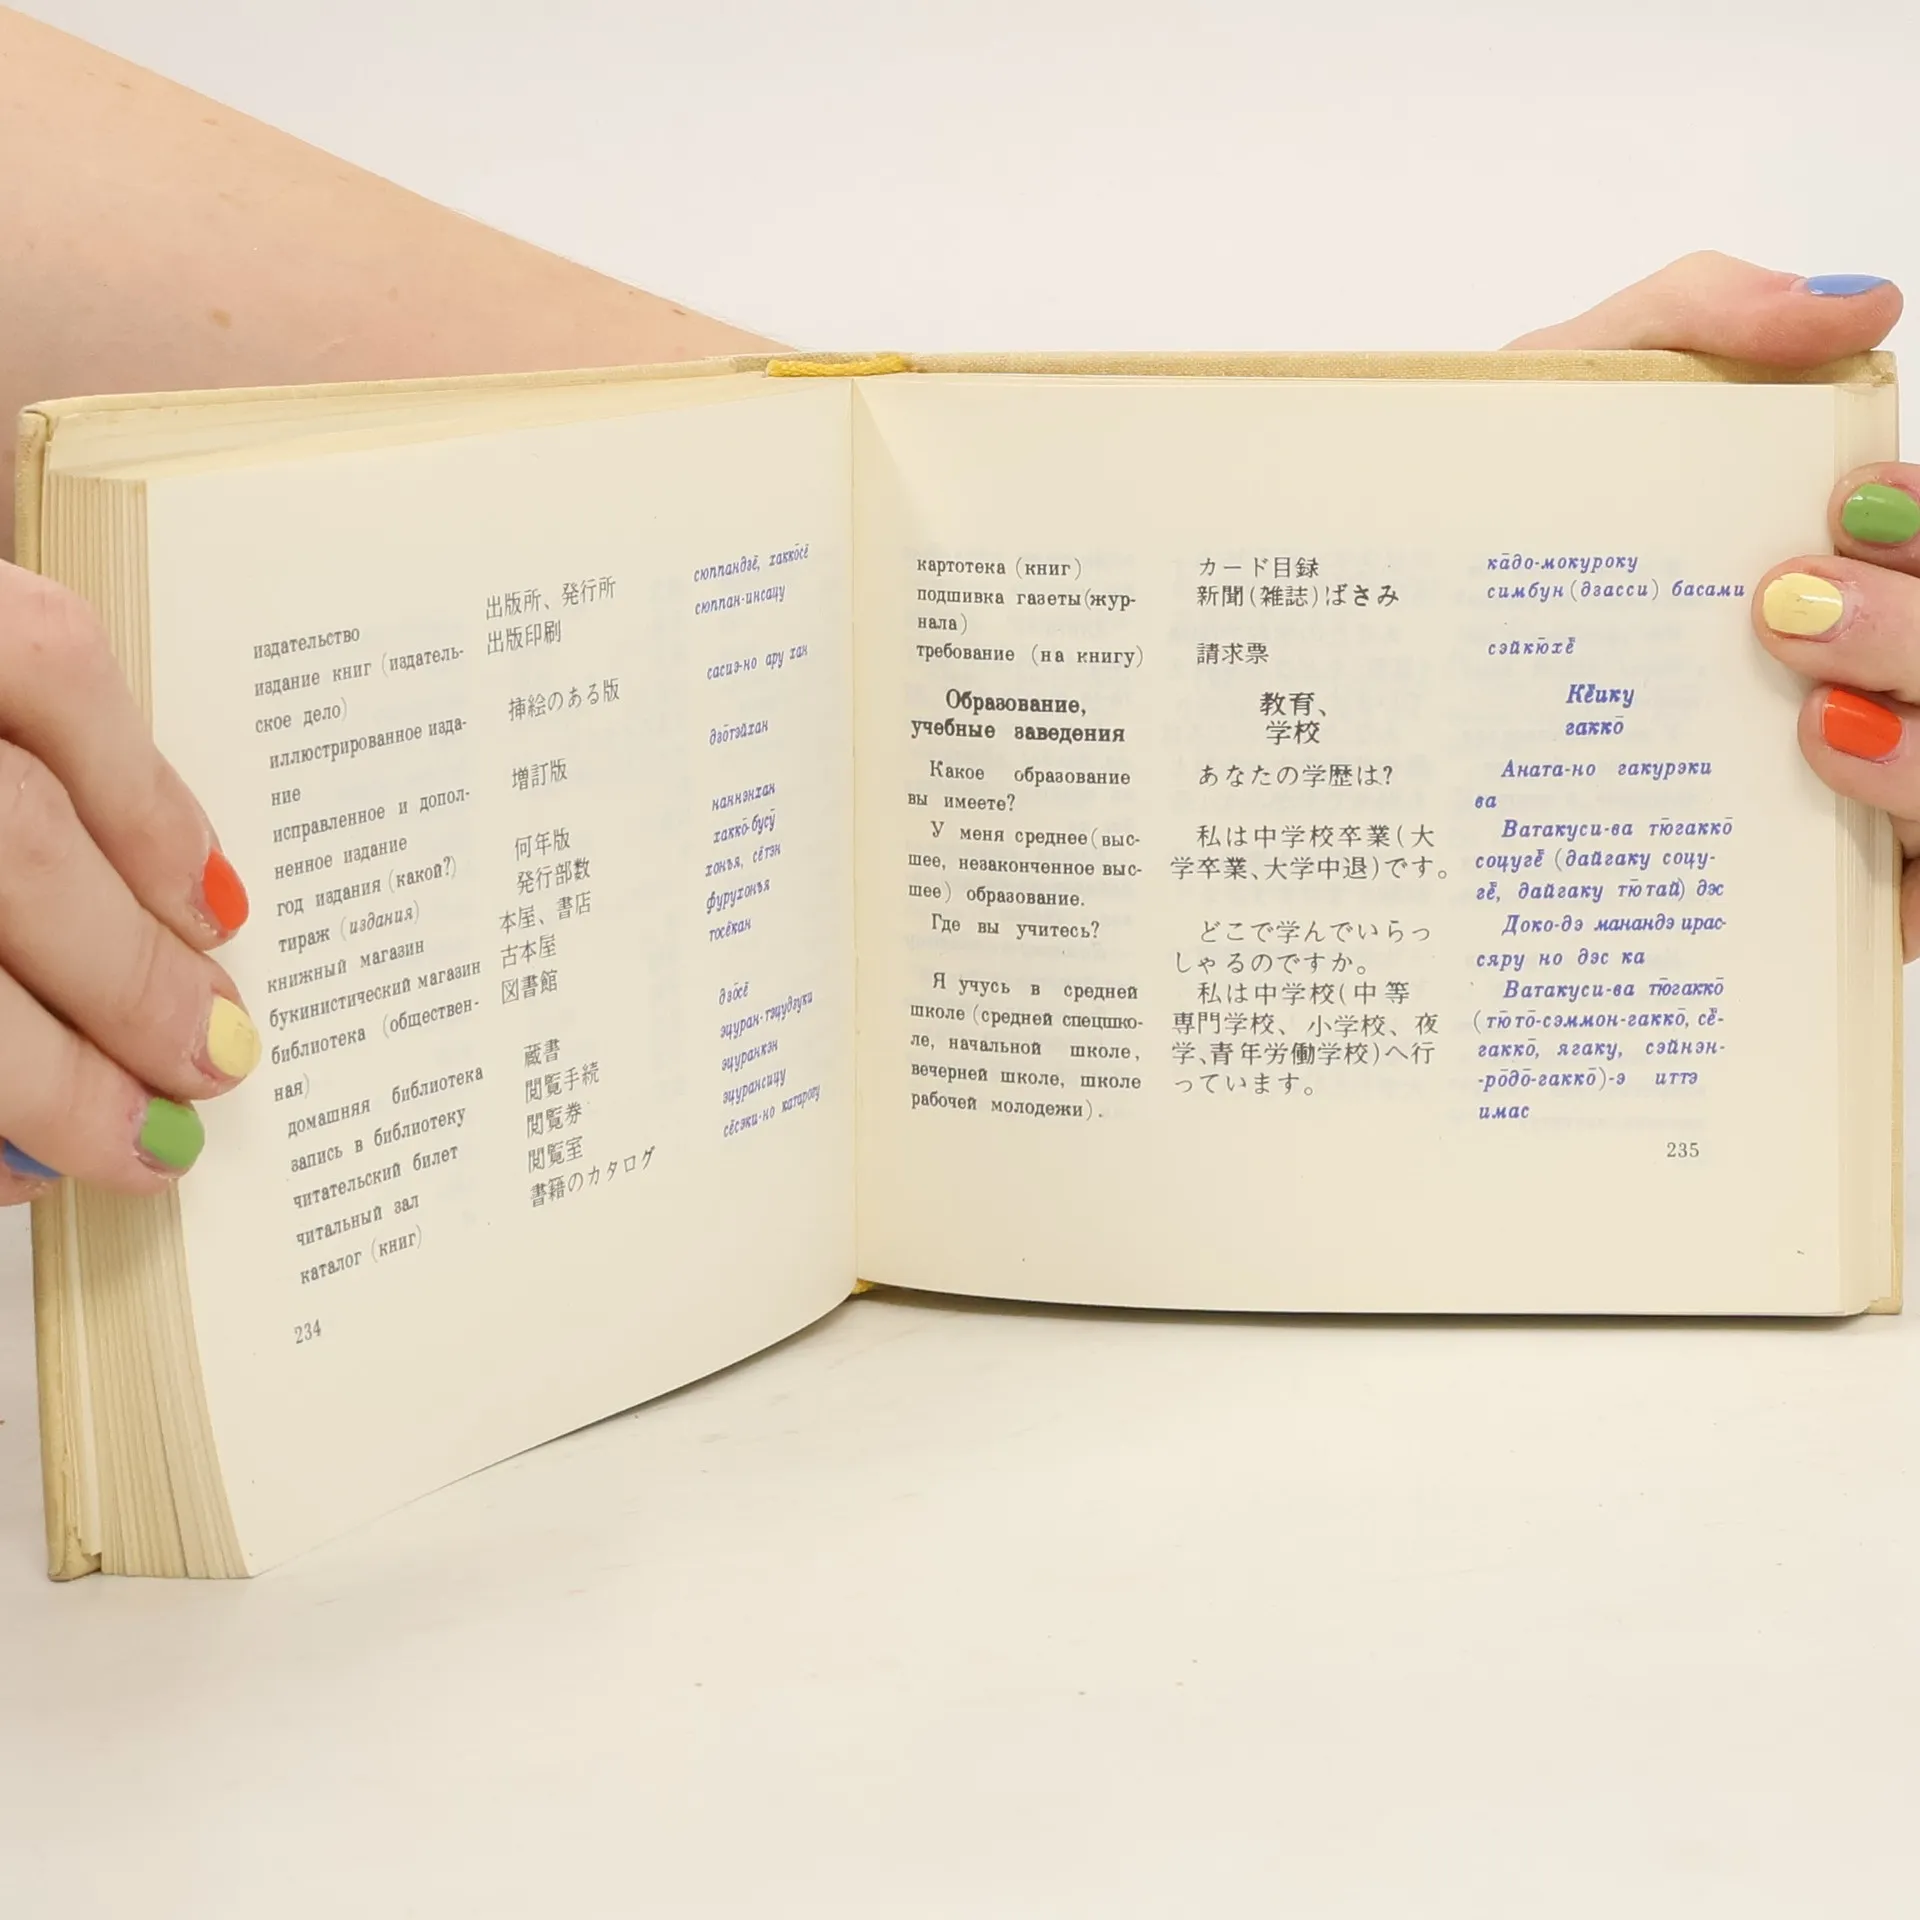 издательство
издание книг (издатель-
ское дело)
иллюстрированное изда-
ние
исправленное и допол-
ненное издание
год издания (какой?)
тираж (издания)
книжный магазин
букинистический магазин
библиотека (обществен-
ная)
домашняя библиотека
запись в библиотеку
читательский билет
читальный зал
каталог (книг)
出版所、発行所
出版印刷
挿絵のある版
増訂版
何年版
発行部数
本屋、書店
古本屋
図書館
蔵書
閲覧手続
閲覧券
閲覧室
書籍のカタログ
сюппандзё, хаккōсё
сюппан-инсацу
сасиэ-но ару хан
дзōтэйхан
наннэнхан
хаккō-бусӯ
хонъя, сётэн
фурухонъя
тосёкан
дзōсё
эцуран-тэцудзуки
эцуранкэн
эцурансицу
сёсэки-но катарогу
234
картотека (книг)
подшивка газеты (жур-
нала)
требование (на книгу)
Образование,
учебные заведения
Какое образование
вы имеете?
У меня среднее (выс-
шее, незаконченное выс-
шее) образование.
Где вы учитесь?
Я учусь в средней
школе (средней спецшко-
ле, начальной школе,
вечерней школе, школе
рабочей молодежи).
カード目録
新聞(雑誌)ばさみ
請求票
教育、
学校
あなたの学歴は?
私は中学校卒業(大
学卒業、大学中退)です。
どこで学んでいらっ
しゃるのですか。
私は中学校(中等
専門学校、小学校、夜
学、青年労働学校)へ行
っています。
кāдо-мокуроку
симбун (дзасси) басами
сэйкю̄хё̄
Кё̄ику
гаккō
Аната-но гакурэки
ва
Ватакуси-ва тю̄гаккō
соцугё̄ (дайгаку соцу-
гё̄, дайгаку тю̄тай) дэс
Доко-дэ манандэ ирас-
сяру но дэс ка
Ватакуси-ва тю̄гаккō
(тю̄тō-сэммон-гаккō, сё̄-
гаккō, ягаку, сэйнэн-
-рōдō-гаккō)-э иттэ
имас
235